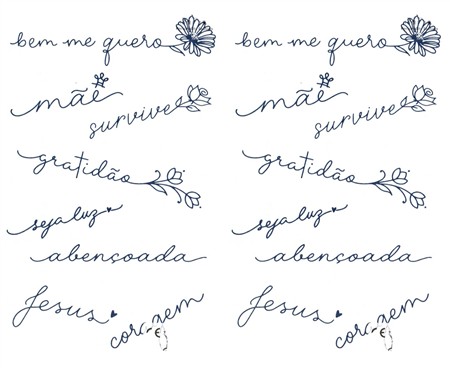 bem me quero
mãe
survive
gratidão
seja luz
abençoada
Jesus
bem me quero
mãe
survive
gratidão
seja luz
abençoada
Jesus